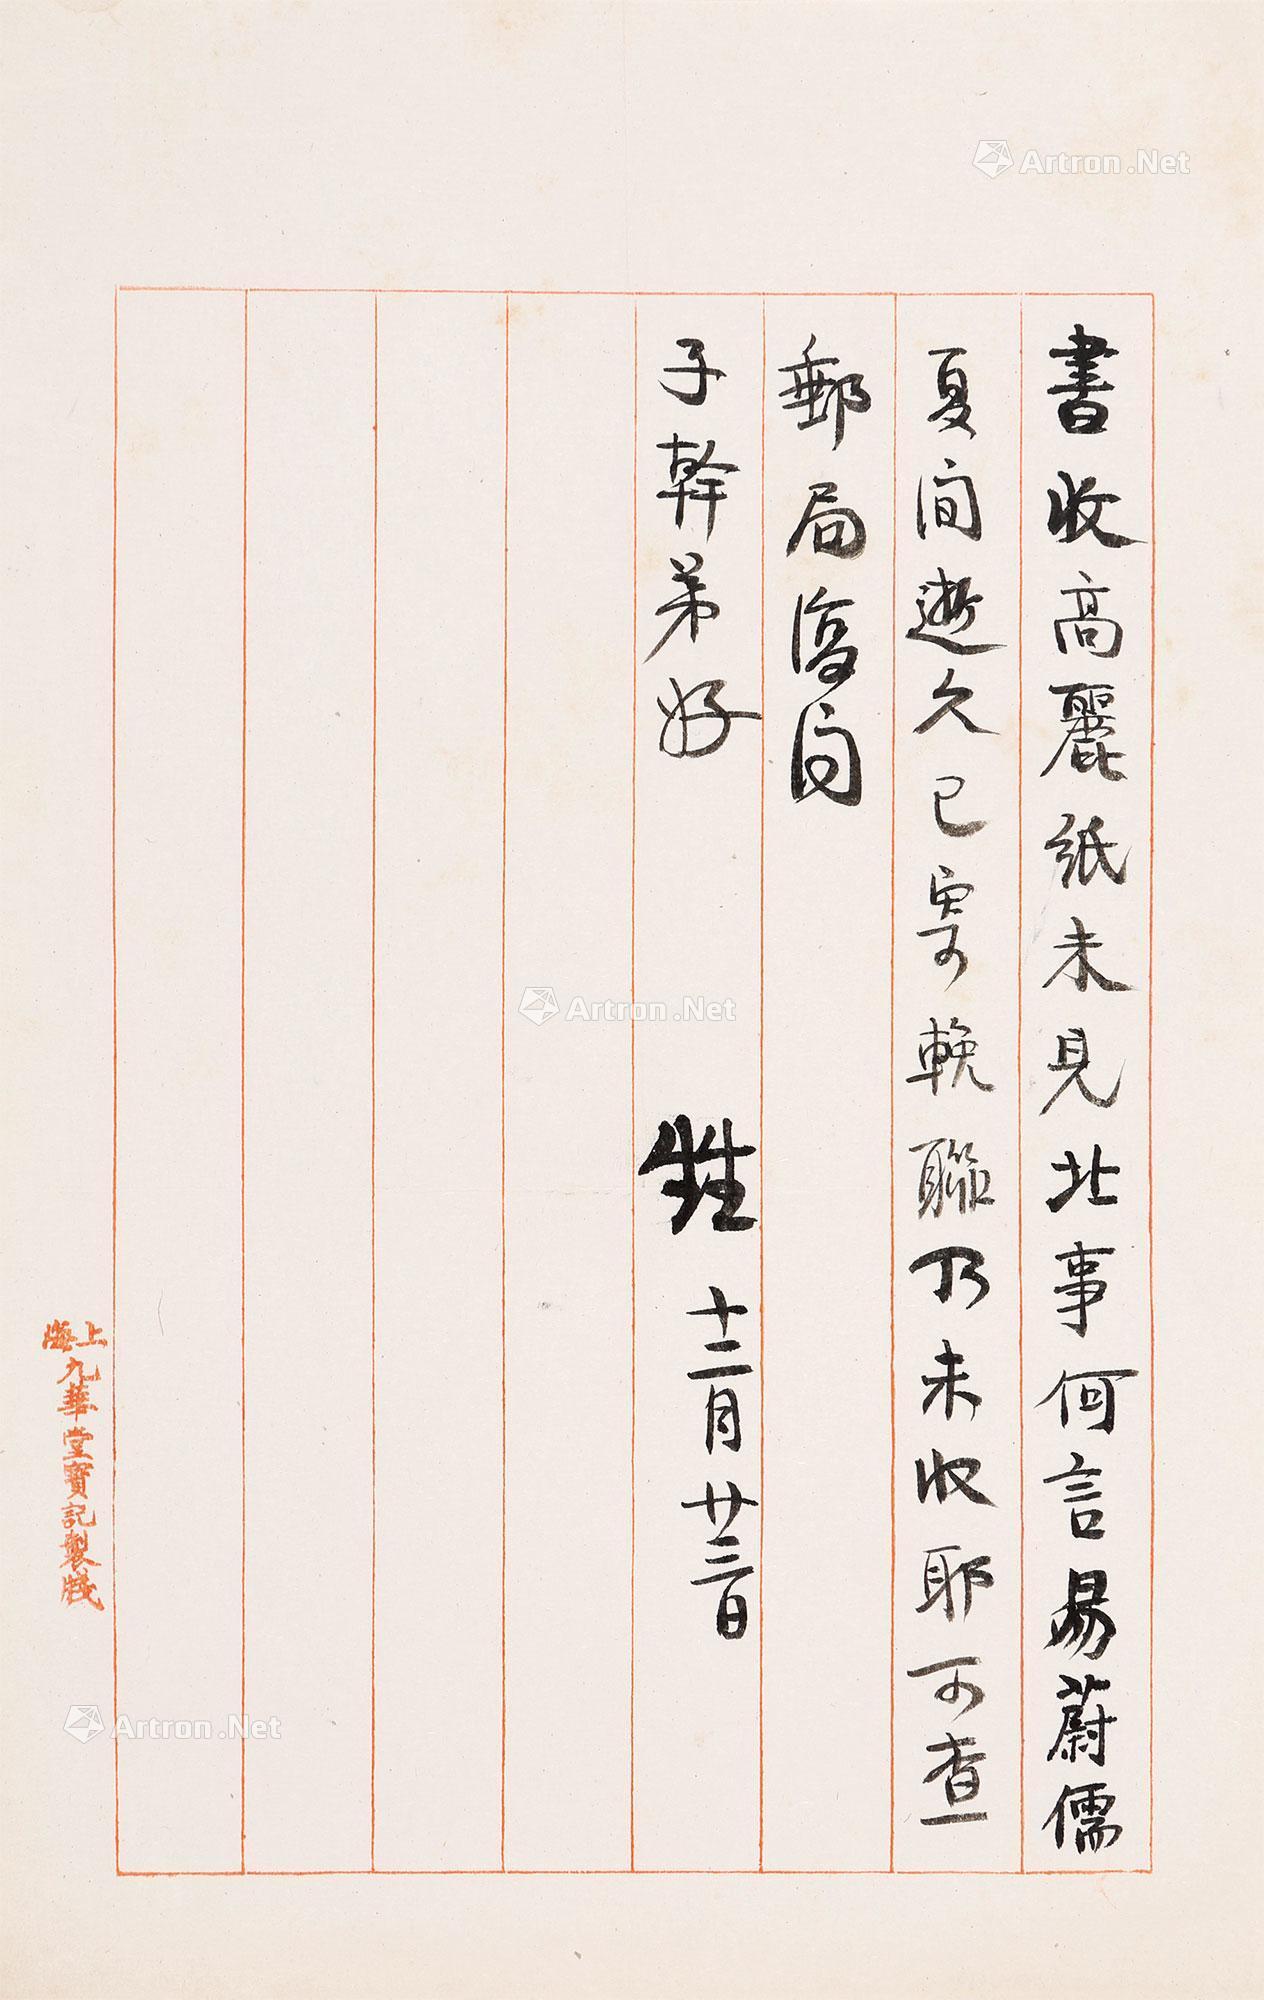 書收高麗紙未見北事何言易蔚儒
夏间逝久已寄輓聯乃未收耶可查
郵局復问
子幹弟好
甡 十二月廿三日
上海
九華堂寶記製牋
Artron.Net
Artron.Net
Artron.Net